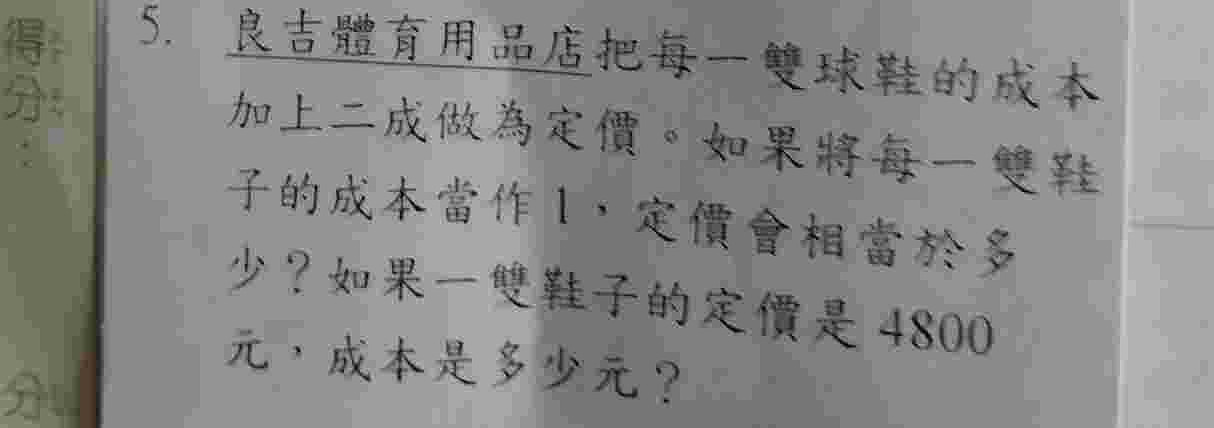 得分：
分
5. 良吉體育用品店把每一雙球鞋的成本
加上二成做為定價。如果將每一雙鞋
子的成本當作1，定價會相當於多
少？如果一雙鞋子的定價是4800
元，成本是多少元？